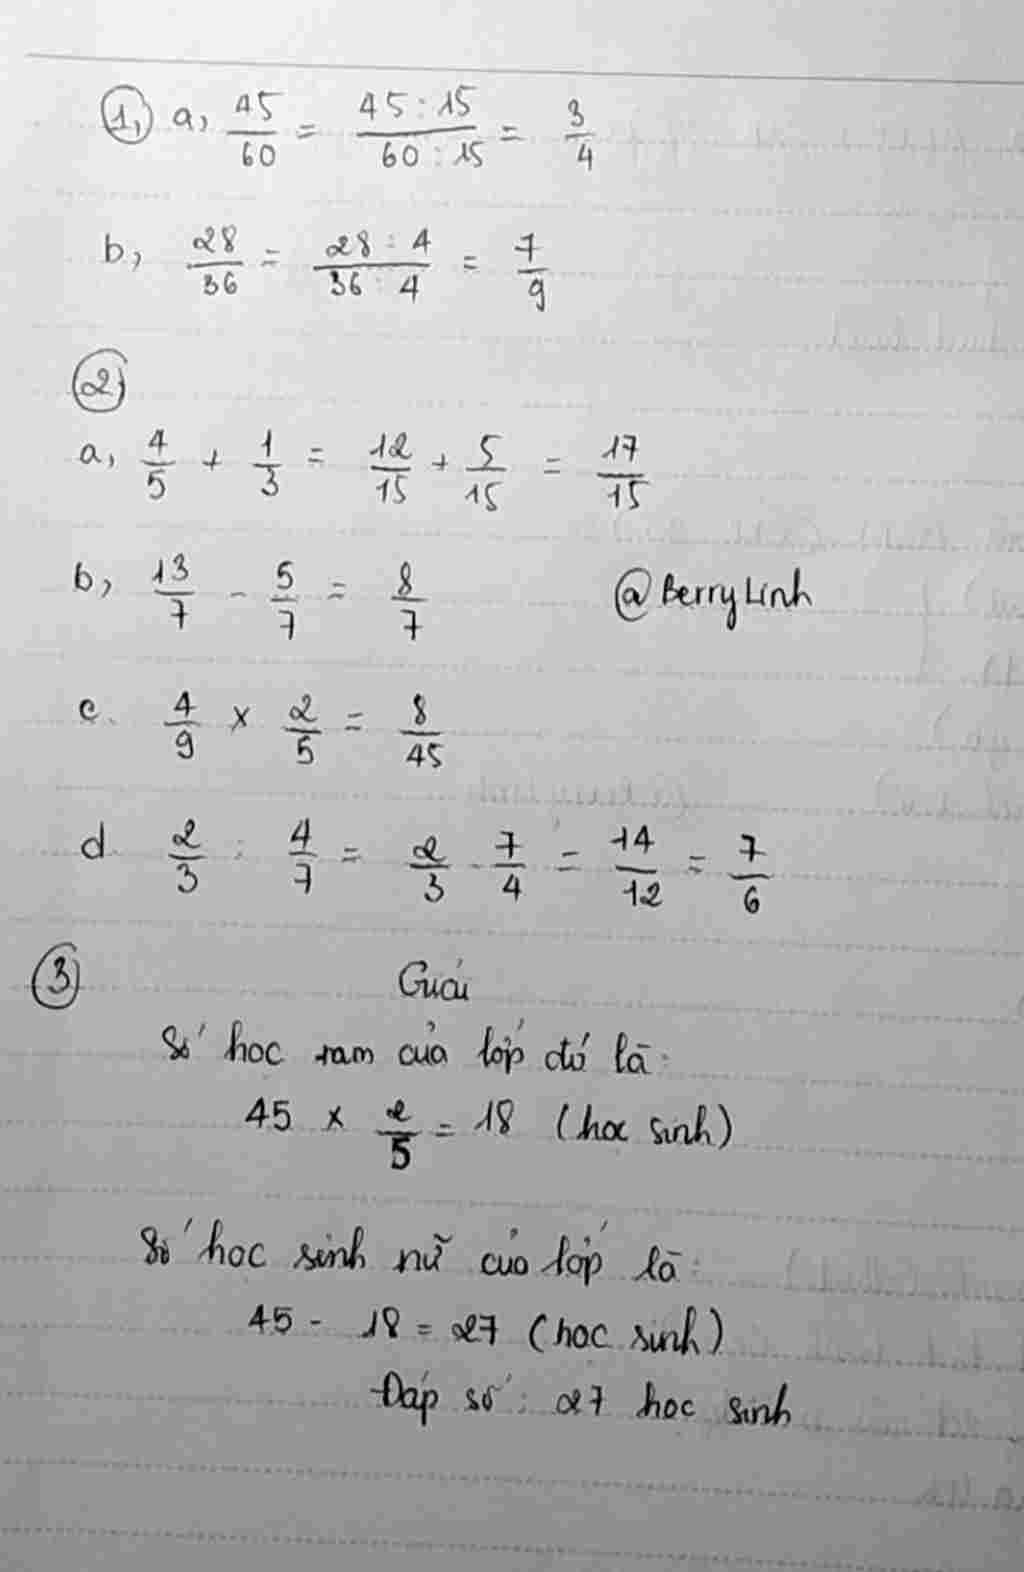 1, a, 45/60 = 45 : 15/60 : 15 = 3/4
b, 28/36 = 28 : 4/36 : 4 = 7/9
2,
a, 4/5 + 1/3 = 12/15 + 5/15 = 17/15
b, 13/7 - 5/7 = 8/7 @BerryLinh
c. 4/9 x 2/5 = 8/45
d. 2/3 : 4/7 = 2/3 . 7/4 = 14/12 = 7/6
3 Giải
Số học nam của lớp đó là:
45 x 2/5 = 18 (học sinh)
Số học sinh nữ của lớp là:
45 - 18 = 27 (học sinh)
Đáp số : 27 học sinh